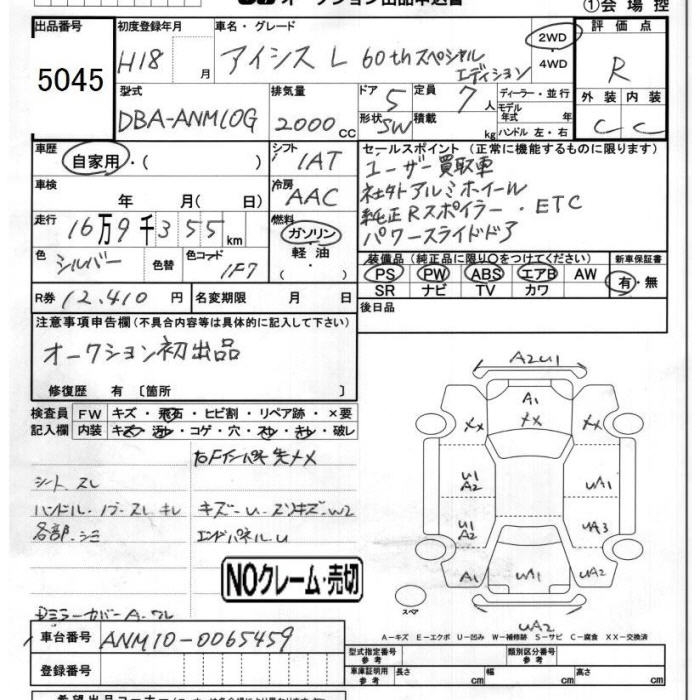 オークション出品申込書
①会場控
出品番号 初度登録年月 車名・グレード 評価点
5045 H18 月 アイシス L 60thスペシャル エディション 2WD 4WD R
型式 排気量 ドア 定員 ディーラー・並行 外装 内装
DBA-ANM10G 2000 CC 5 7人 モデル年式 年 C C
形状 SW 積載 kg ハンドル 左・右
車歴 自家用・( ) シフト 1AT セールスポイント (正常に機能するものに限ります)
ユーザー買取車
車検 年 月( 日) 冷房 AAC 社外アルミホイール
純正Rスポイラー・ETC
走行 16万9千355km 燃料 ガソリン 軽油 ( ) パワースライドドア
色 シルバー 色替 色コード 1F7 装備品 (純正品に限り○をつけてください) 新車保証書
PS PW ABS エアB AW 有・無
R券 12,410円 名変期限 月 日 SR ナビ TV カワ
後日品
注意事項申告欄 (不具合内容等は具体的に記入して下さい)
オークション初出品
修復歴 有 〔箇所 〕
検査員 FW キズ・飛石・ヒビ割・リペア跡・×要
記入欄 内装 キズ・汚レ・コゲ・穴・スレ・キレ・破レ
シート スレ
ハンドル・ノブ・スレ キレ キズー U-スリキズ-W2
各部・シミ エンドパネル U
NOクレーム・売切
DミラーカバーA・ワレ
A2U1
A1
XX XX XX
U1 A2 UA1
U1 A2 UA3
A1 UA1 UA2
スペア
UA2
A-キズ E-エクボ U-凹み W-補修跡 S-サビ C-腐食 XX-交換済
車台番号 ANM10-0065459
型式指定番号 参考 類別区分番号 参考
登録番号 車庫証明用 参考 長さ cm 幅 cm 高さ cm